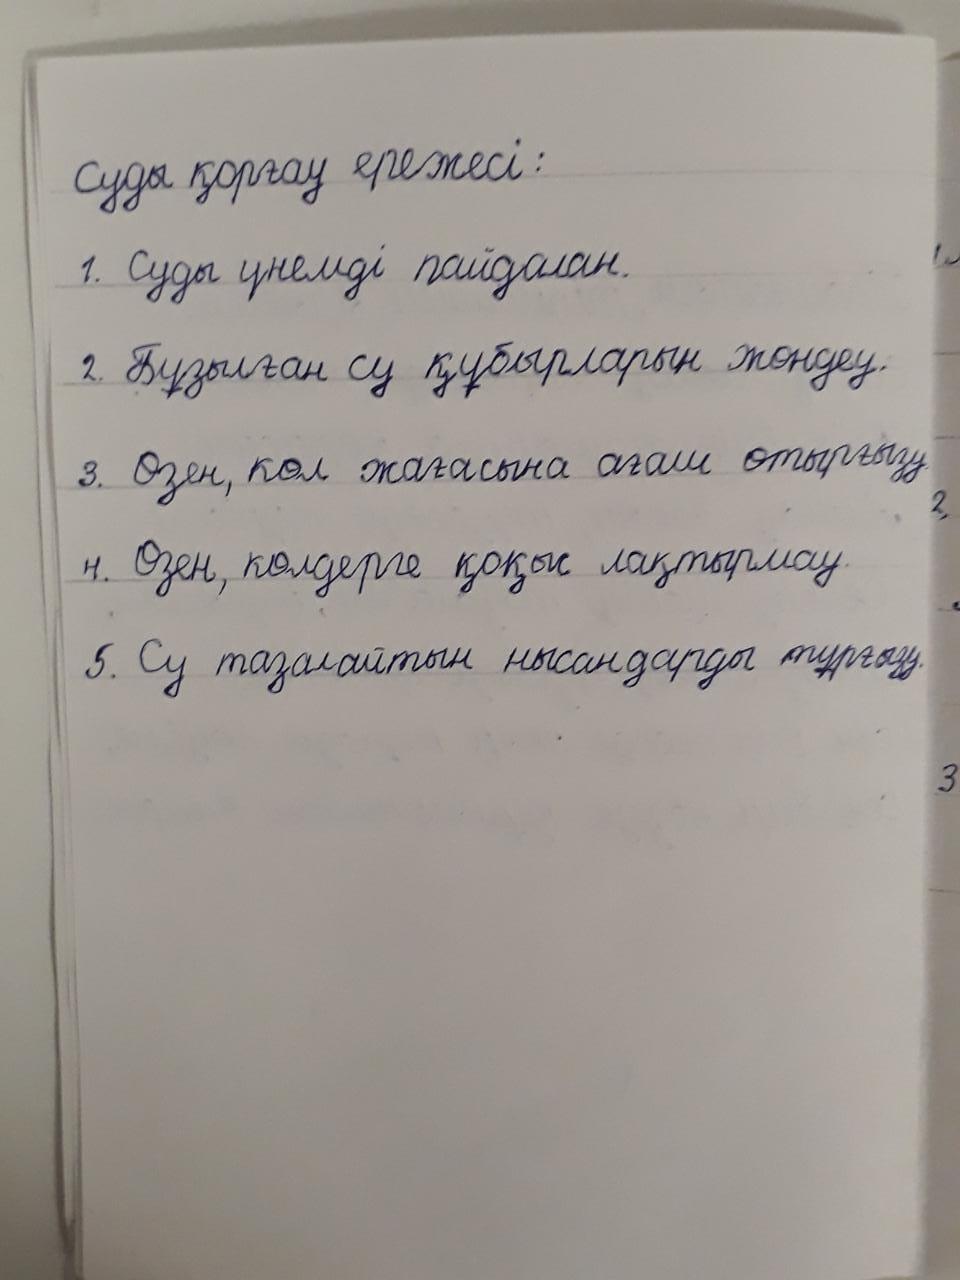 Суды қорғау ережесі:
1. Суды үнемді пайдалан.
2. Бұзылған су құбырларын жөндеу.
3. Өзен, көл жағасына ағаш отырғызу
4. Өзен, көлдерге қоқыс лақтырмау.
5. Су тазалайтын нысандарды тұрғызу.
1.
2,
3